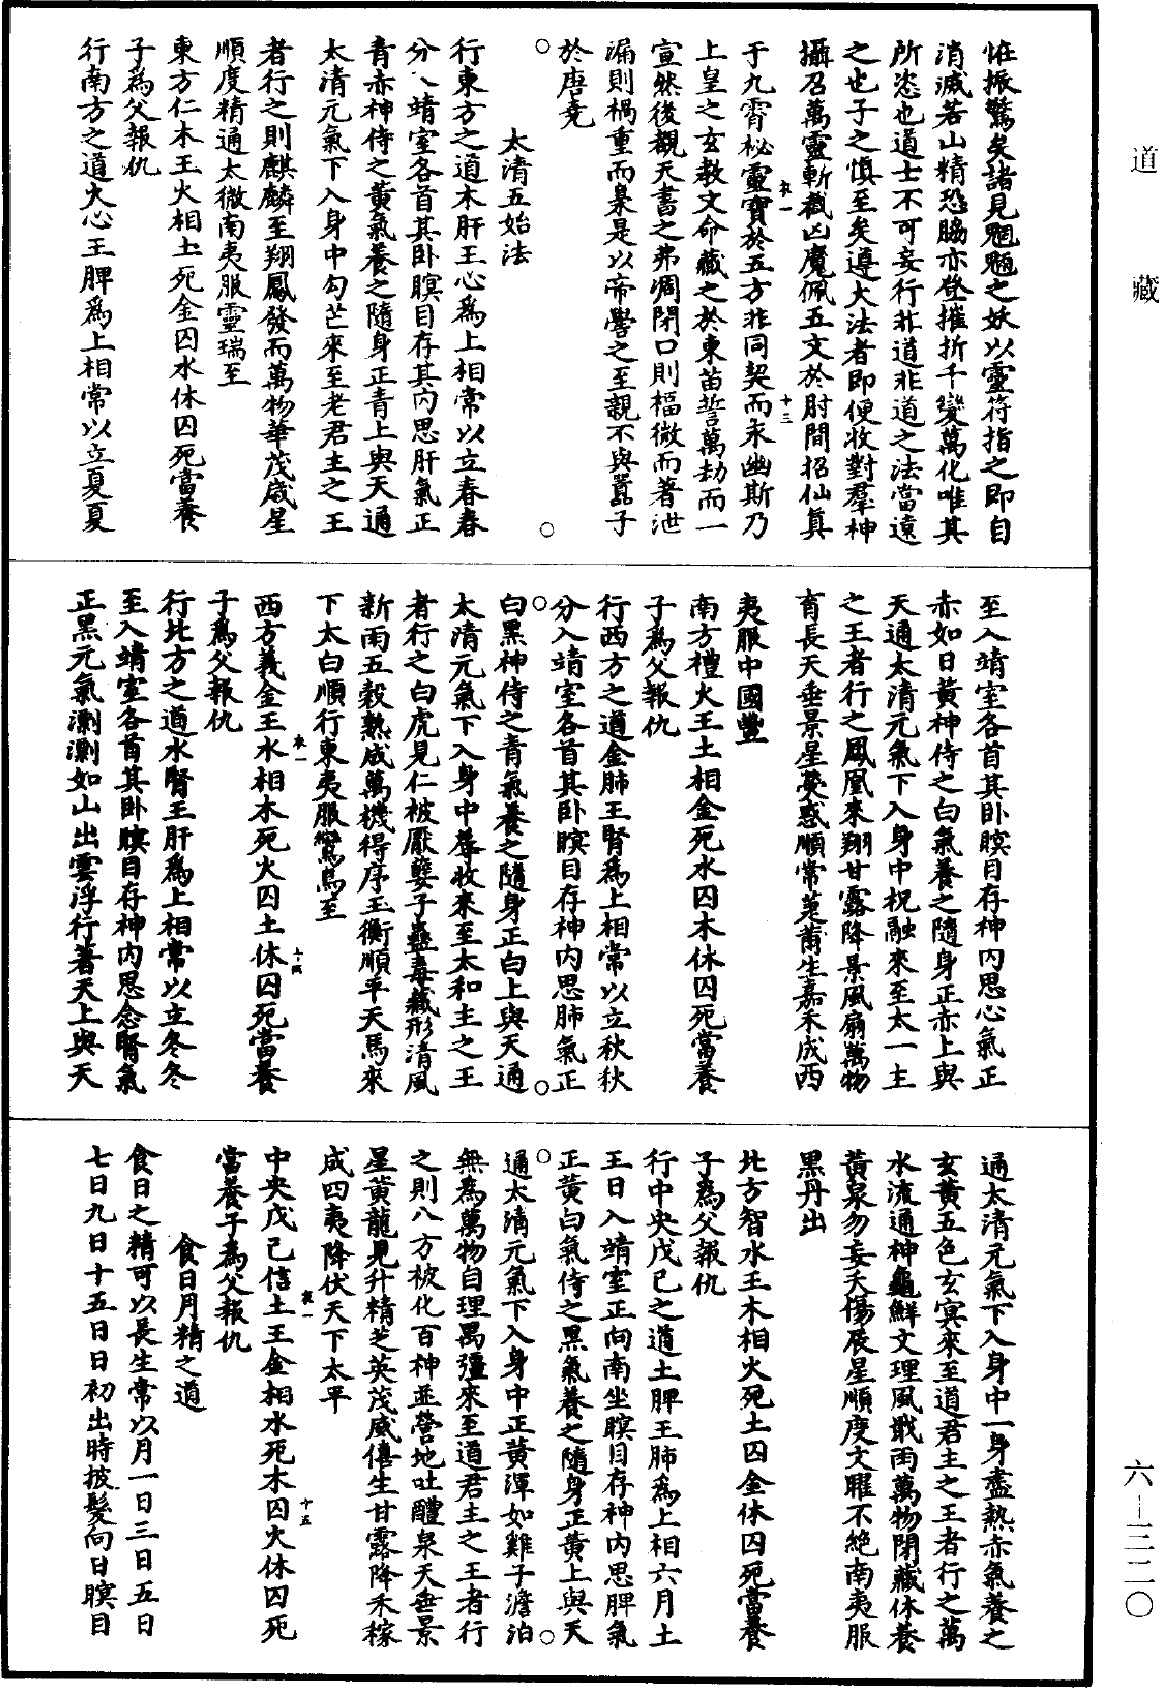 道藏
六—三二〇
恠振驚矣諸見魍魎之妖以靈符指之即自
消滅若山精恐脇亦登摧折千變萬化唯其
所恣也道士不可妄行非道非道之法當遠
之也子之慎至矣遵大法者即便收對羣神
攝召萬靈斬截凶魔佩五文於肘間招仙真
于九霄祕靈寶於五方非同契而永幽斯乃
上皇之玄教文命藏之於東苗誓萬劫而一
宣然後觀天書之弗凋閉口則福微而著泄
漏則禍重而臬是以帝嚳之至親不與嚚子
於唐尭
太清五始法
行東方之道木肝王心爲上相常以立春春
分入靖室各首其卧瞑目存其内思肝氣正
青赤神侍之黃氣養之隨身正青上與天通
太清元氣下入身中勾芒來至老君主之王
者行之則麒麟至翔鳳發而萬物華茂歲星
順度精通太微南夷服靈瑞至
東方仁木王火相土死金囚水休囚死當養
子為父報仇
行南方之道火心王脾爲上相常以立夏夏
至入靖室各首其卧瞑目存神内思心氣正
赤如日黃神侍之白氣養之隨身正赤上與
天通太清元氣下入身中祝融來至太一主
之王者行之鳳凰來翔甘露降景風扇萬物
育長天垂景星熒惑順常萐莆生嘉禾成西
夷服中國豐
南方禮火王土相金死水囚木休囚死當養
子爲父報仇
行西方之道金肺王腎爲上相常以立秋秋
分入靖室各首其卧瞑目存神内思肺氣正
白黑神侍之青氣養之隨身正白上與天通
太清元氣下入身中蓐收來至太和主之王
者行之白虎見仁被厭孽子蠱毒藏形清風
新雨五穀熟成萬機得序玉衡順平天馬來
下太白順行東夷服鸞鳥至
西方義金王水相木死火囚土休囚死當養
子爲父報仇
行北方之道水腎王肝爲上相常以立冬冬
至入靖室各首其卧瞑目存神内思念腎氣
正黑元氣淵淵如山出雲浮行著天上與天
通太清元氣下入身中一身盡熱赤氣養之
玄黃五色玄冥來至道君主之王者行之萬
水流通神龜鮮文理風散雨萬物閉藏休養
黃泉勿妄夭傷辰星順度文曜不絕南夷服
黑丹出
北方智水王木相火死土囚金休囚死當養
子爲父報仇
行中央戊己之道土脾王肺爲上相六月土
王日入靖室正向南坐瞑目存神内思脾氣
正黃白氣侍之黑氣養之隨身正黃上與天
通太清元氣下入身中正黃渾如雞子澹泊
無為萬物自理禺彊來至道君主之王者行
之則八方被化百神並營地吐醴泉天垂景
星黃龍見升精芝英茂威僖生甘露降禾稼
成四夷降伏天下太平
中央戊己信土王金相水死木囚火休囚死
當養子爲父報仇
食日月精之道
食日之精可以長生常以月一日三日五日
七日九日十五日日初出時披髮向日瞑目